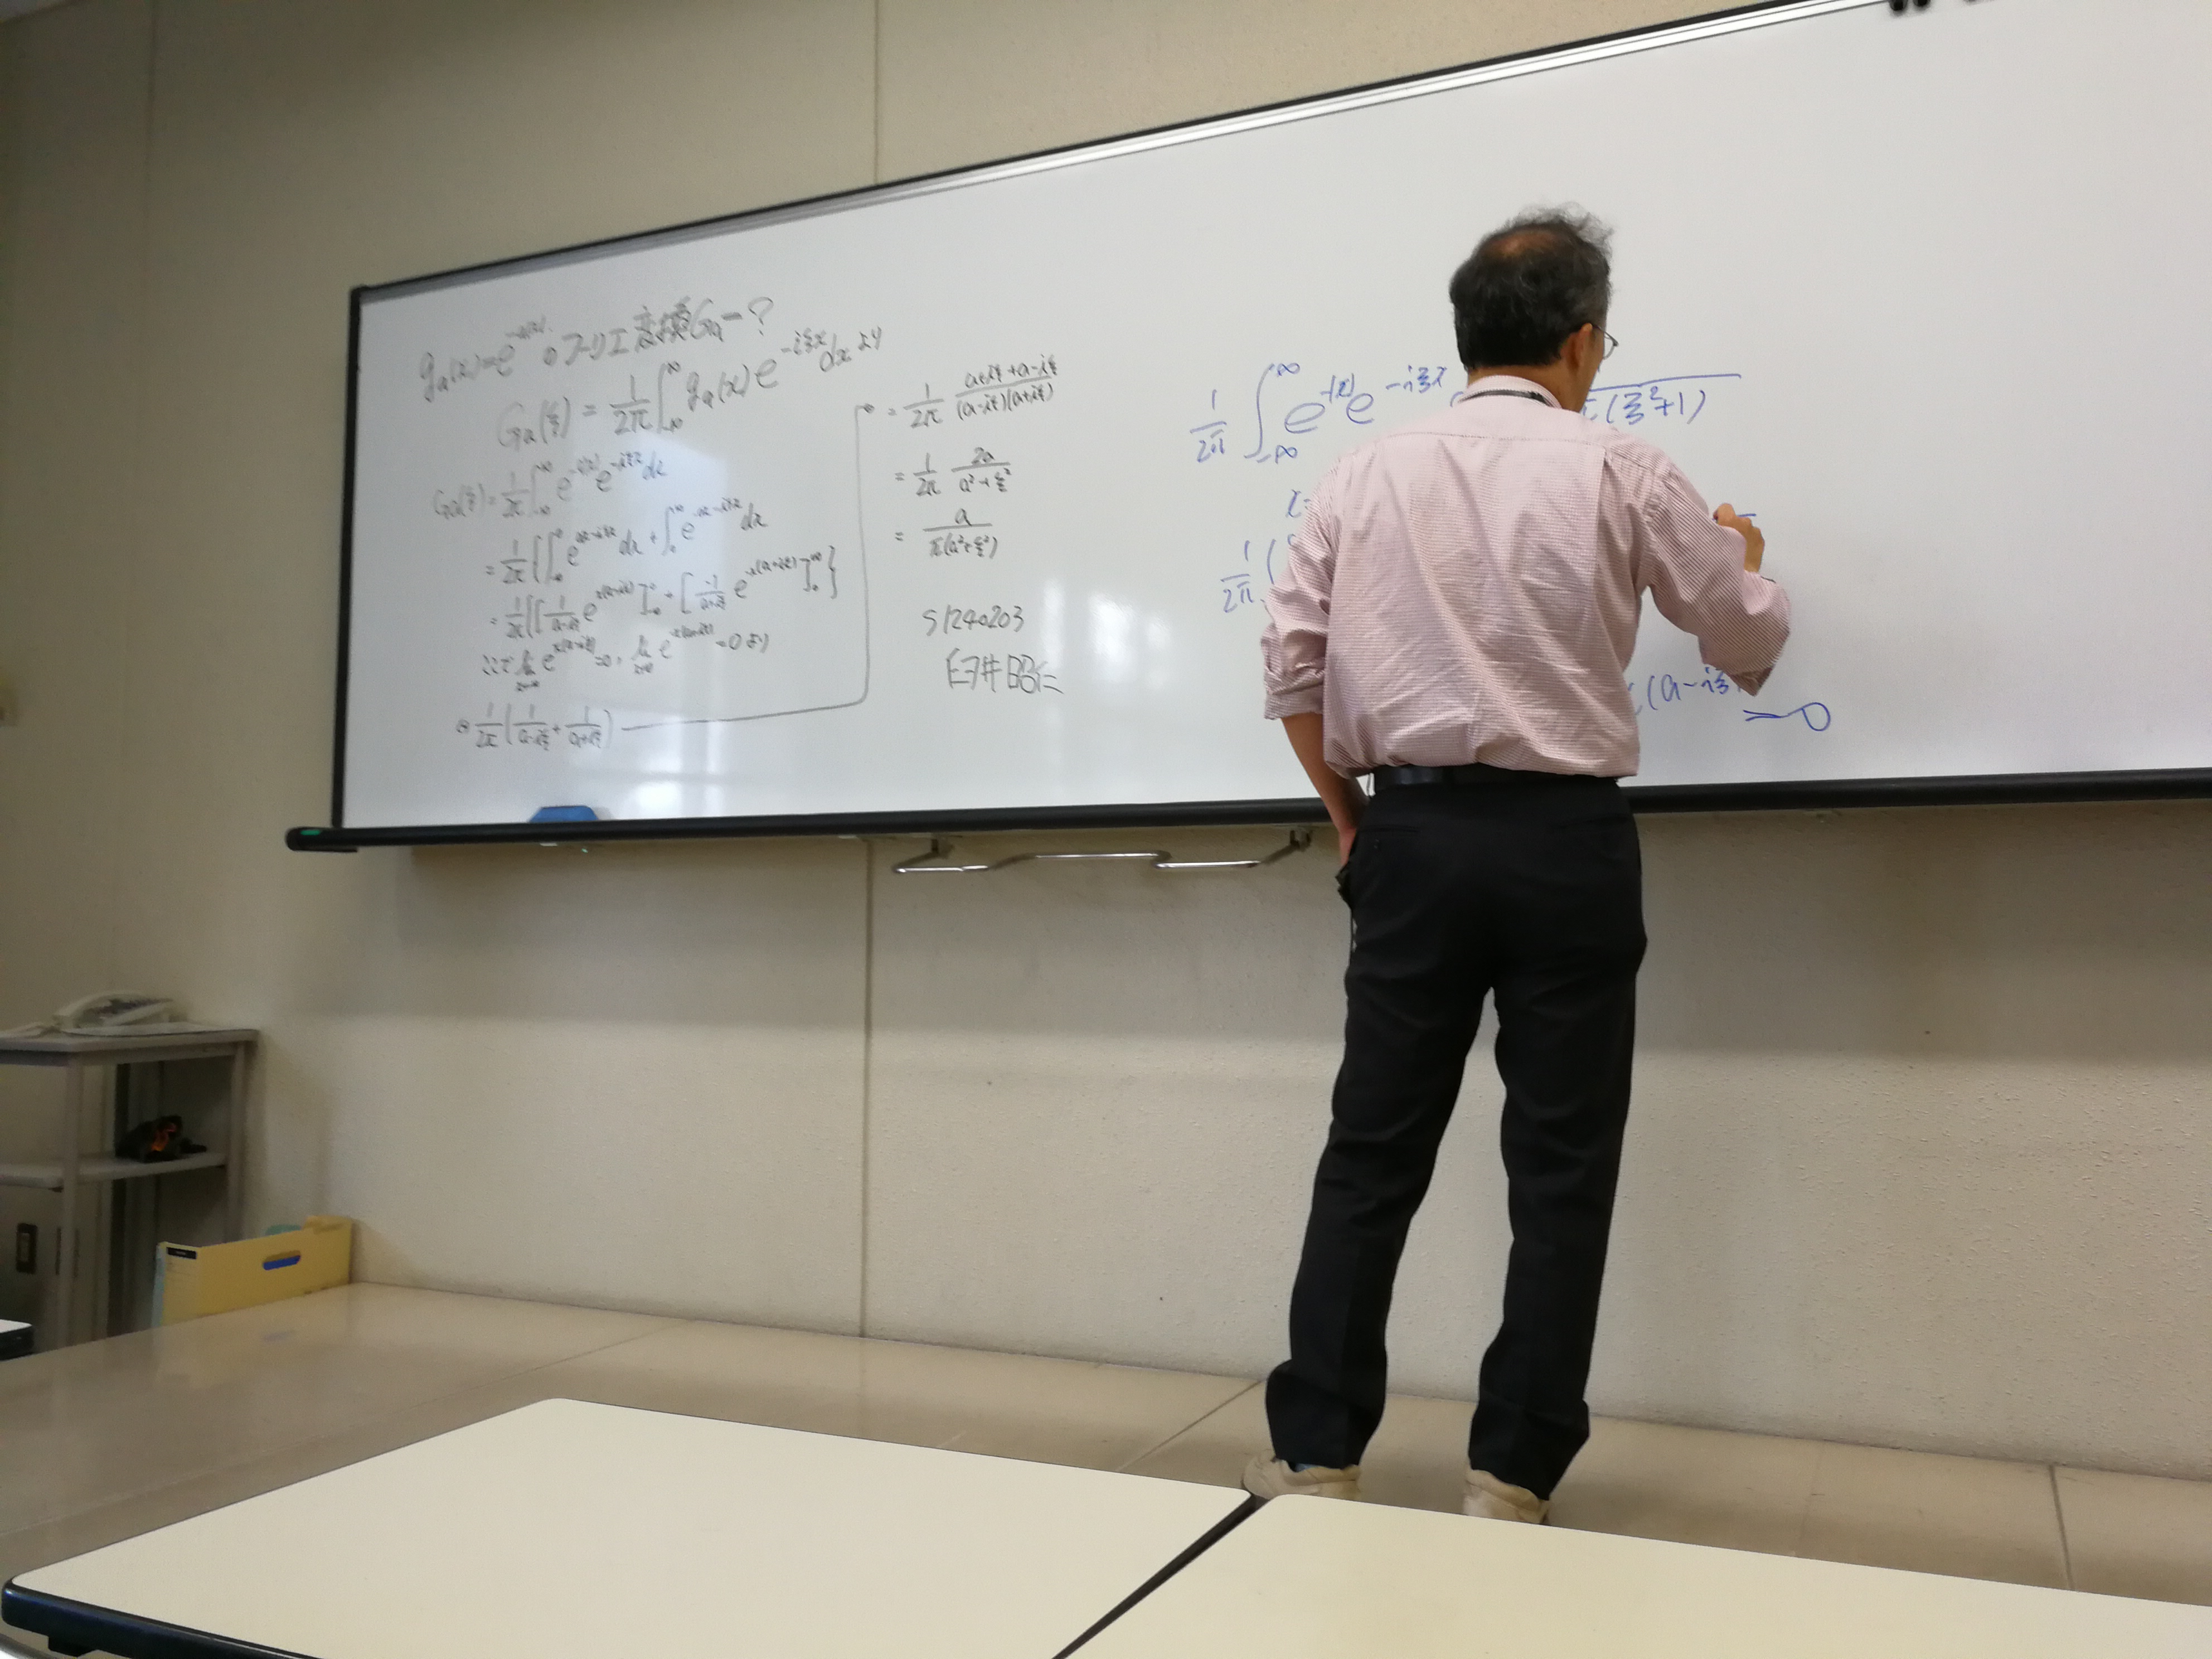 g_a(x)=e^{-a|x|} のフーリエ変換 G_a=?
G_a(ξ) = \frac{1}{2π}∫_{-∞}^{∞} g_a(x)e^{-iξx}dx より
G_a(ξ)=\frac{1}{2π}∫_{-∞}^{∞} e^{-a|x|}e^{-iξx}dx
=\frac{1}{2π}{∫_{-∞}^{0} e^{ax-iξx}dx+∫_{0}^{∞} e^{-ax-iξx}dx
=\frac{1}{2π}{[\frac{1}{a-iξ}e^{x(a-iξ)}]_{-∞}^{0}+[\frac{-1}{a+iξ}e^{-x(a+iξ)}]_{0}^{∞}}
ここで e^{x(a-iξ)}=0, =0より
\frac{1}{2π}(\frac{1}{a-iξ}+\frac{1}{a+iξ})
=\frac{1}{2π}\frac{a+iξ+a-iξ}{(a-iξ)(a+iξ)}
=\frac{1}{2π}\frac{2a}{a²+ξ²}
=\frac{a}{π(a²+ξ²)}
S1240203
臼井昭仁
\frac{1}{2π}∫_{-∞}^{∞} e^{-|x|}e^{-iξx} π(ξ²+1)
x=
\frac{1}{2π}(
(a-iξ
=0